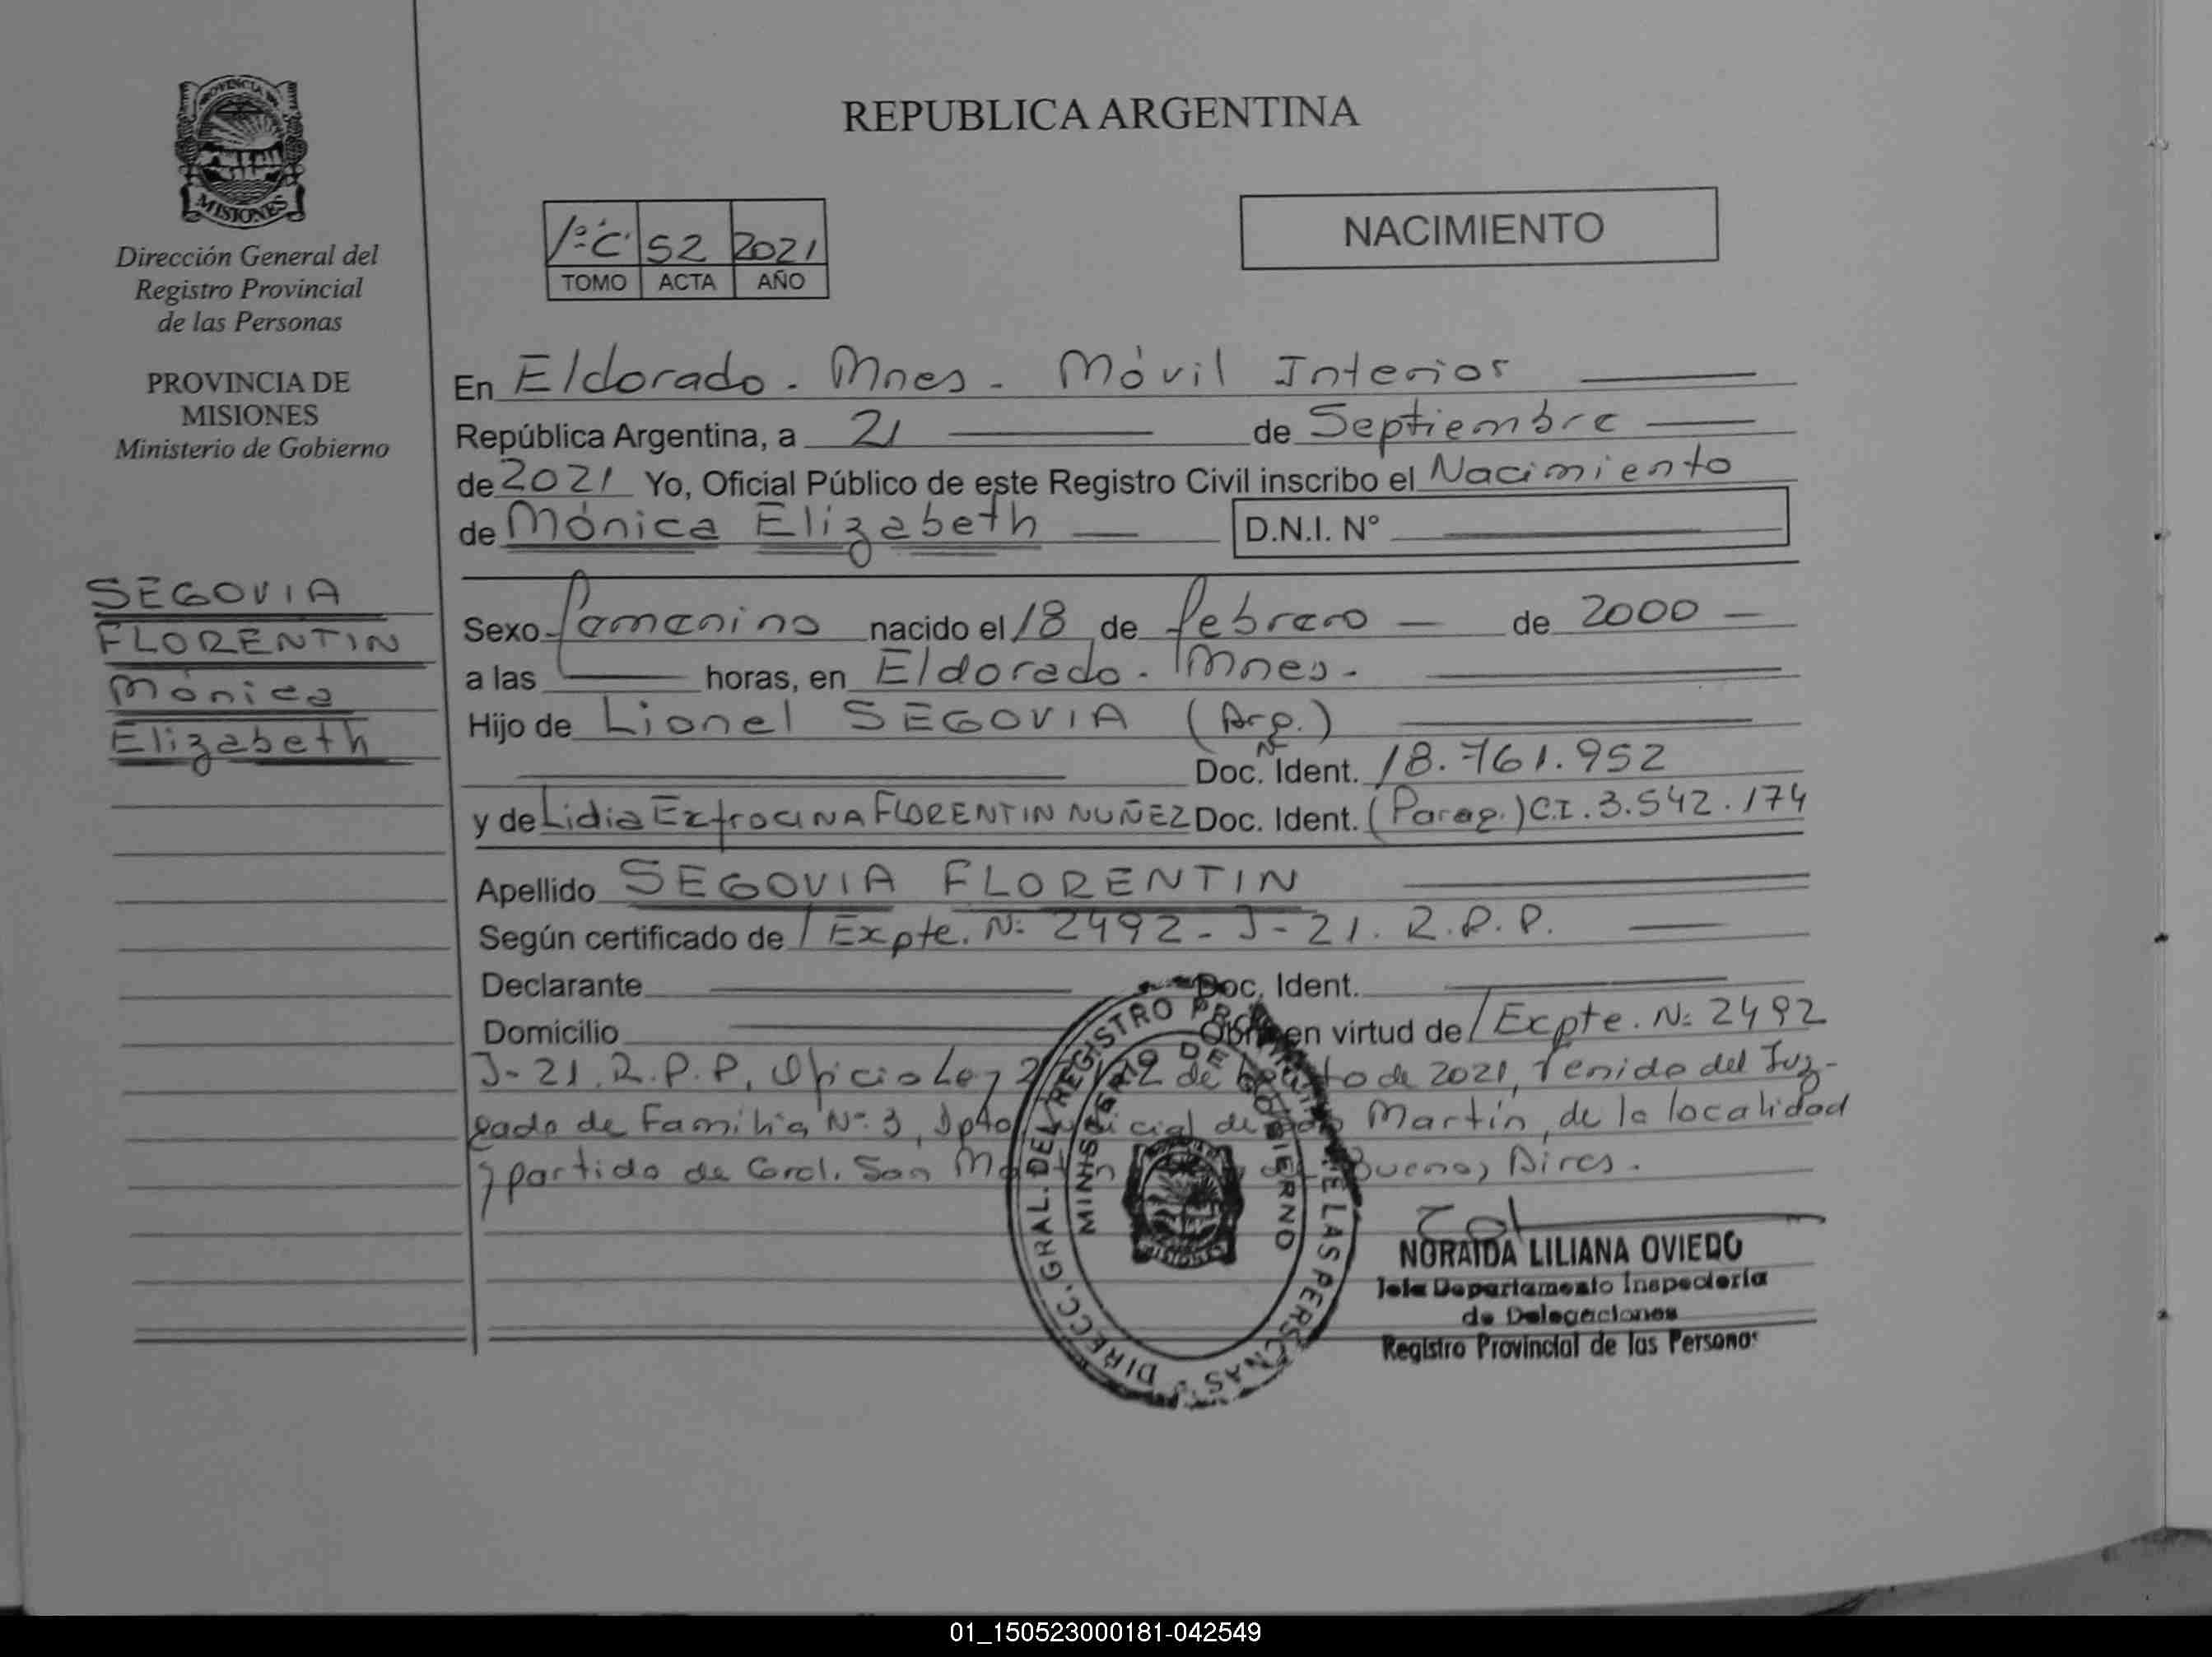 PROVINCIA DE
MISIONES
Dirección General del
Registro Provincial
de las Personas
PROVINCIA DE
MISIONES
Ministerio de Gobierno
SEGOVIA
FLORENTIN
Mónica
Elizabeth
REPUBLICA ARGENTINA
1º "C" 52 2021
TOMO ACTA AÑO
NACIMIENTO
En Eldorado - Mnes - Móvil Interior
República Argentina, a 21 de Septiembre
de 2021 Yo, Oficial Público de este Registro Civil inscribo el Nacimiento
de Mónica Elizabeth D.N.I. N°
Sexo femenino nacido el 18 de febrero de 2000
a las horas, en Eldorado - Mnes -
Hijo de Lionel SEGOVIA (Arg.)
Doc. Ident. 18.761.952
y de Lidia FLORENTIN NUÑEZ Doc. Ident. (Parag.) C.I. 3.542.174
Apellido SEGOVIA FLORENTIN
Según certificado de / Expte. Nº 2492 - J - 21. R.P.P.
Declarante Doc. Ident.
Domicilio en virtud de / Expte. Nº 2492
J-21. R.P.P, Oficio Ley 2 de de 2021, venido del Juz-
gado de Familia Nº 3, Dpto de Martín, de la localidad
y partido de Gral. San Buenos Aires.
DIRECC. GRAL. DEL REGISTRO DE LAS PERSONAS
MINISTERIO DE GOBIERNO
MISIONES
NORAIDA LILIANA OVIEDO
Jefa Departamento Inspectoría
de Delegaciones
Registro Provincial de las Personas
01_150523000181-042549